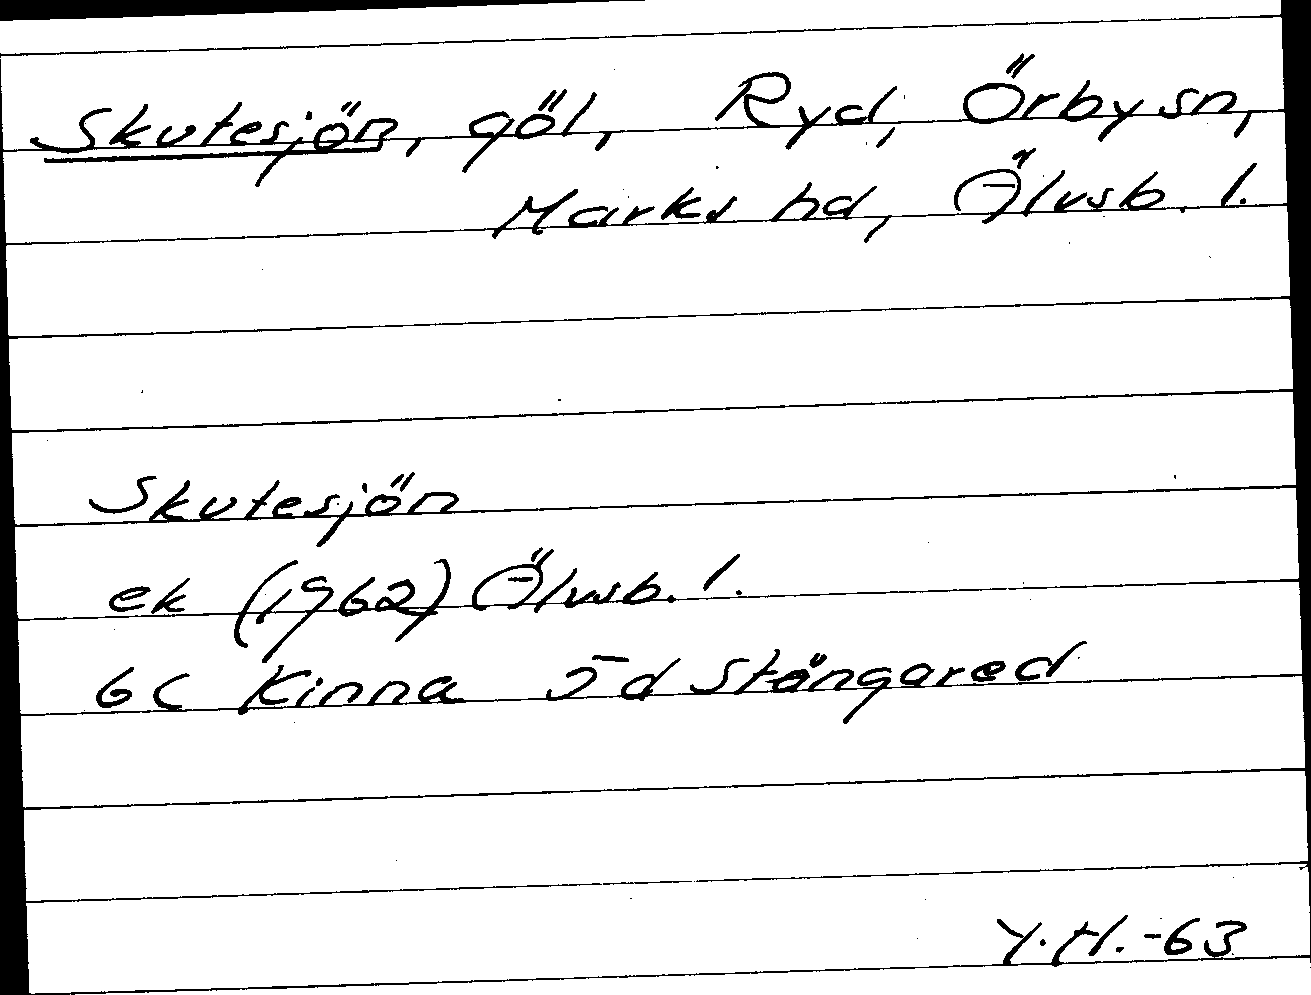 Skutesjön, göl, Ryd, Örby sn,
Marks hd, Älvsb. l.
Skutesjön
ek (1962) Älvsb. l.
6C Kinna 5d Stångared
Y.H. -63